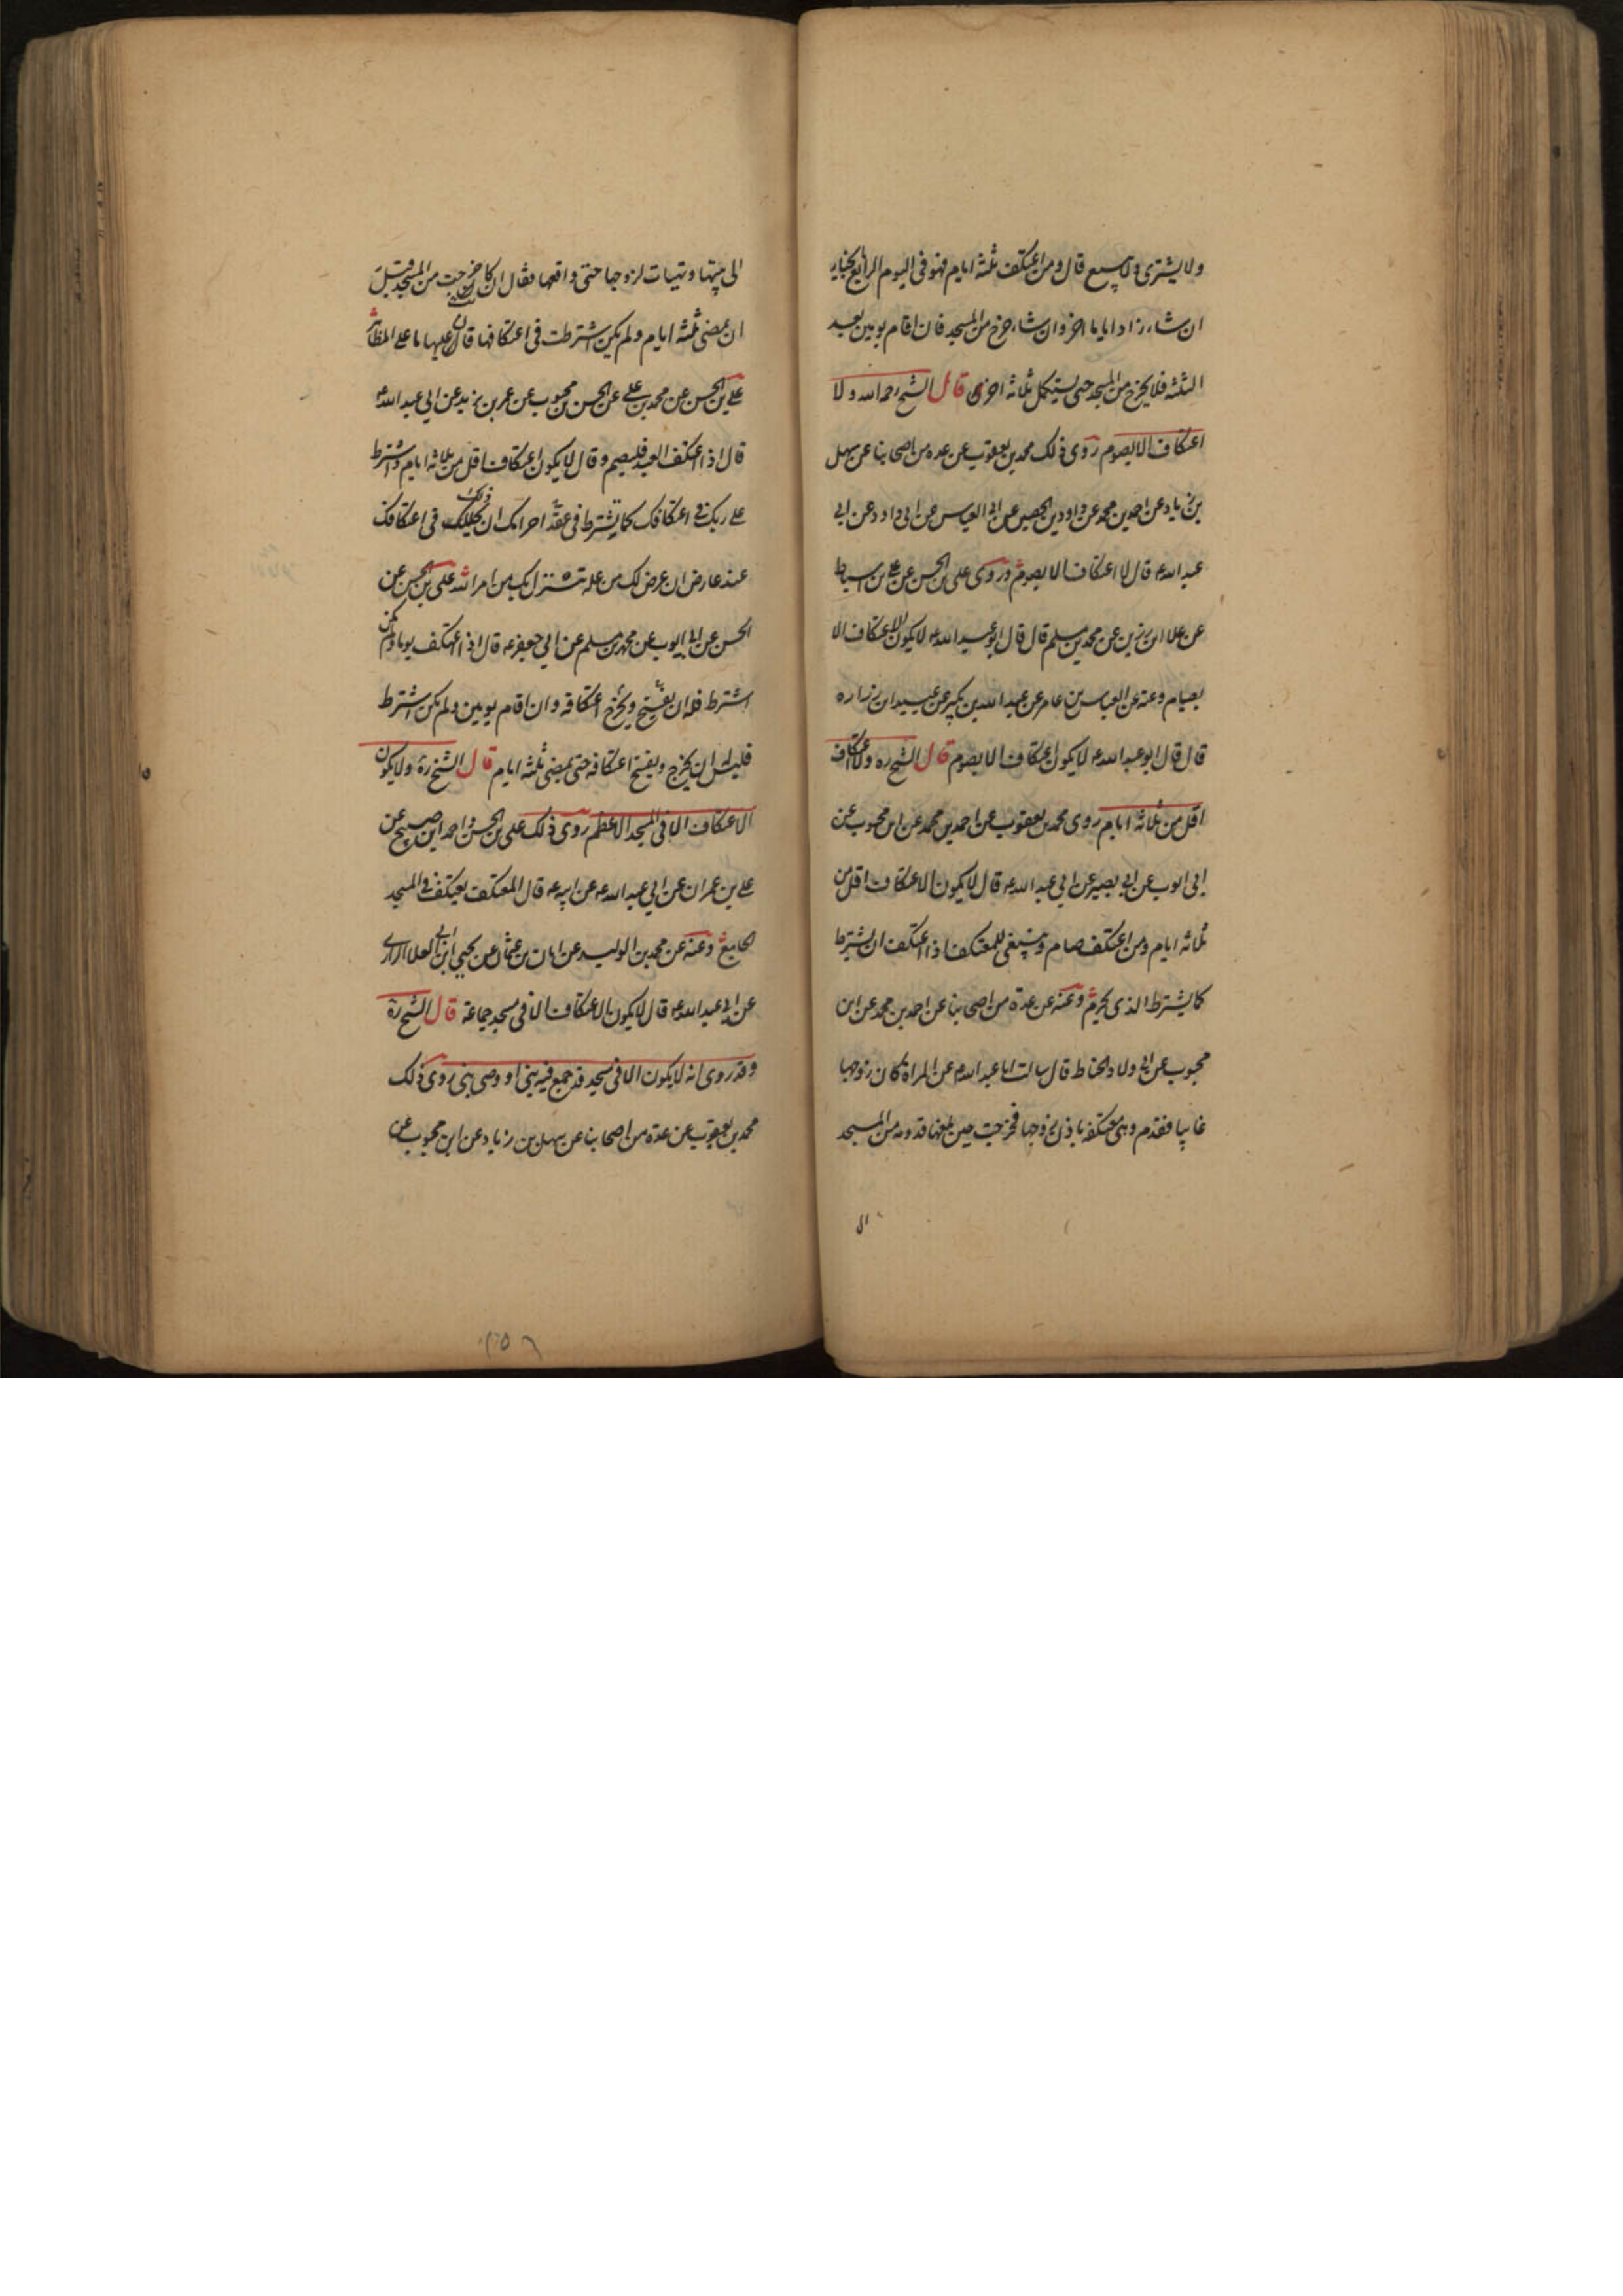 ولا يشترى ولا يبيع قال ومن اعتكف ثلثه ايام فهو فى اليوم الرابع بالخيار
ان شاء زاد اياما اخر وان شاء خرج من المسجد فان اقام يومين بعد
الثلثه فلا يخرج من المسجد حتى يستكمل ثلاثه اخرى قال الشيخ رحمه الله ولا
اعتكاف الا بصوم روى ذلك محمد بن يعقوب عن عده من اصحابنا عن سهل
بن زياد عن احمد بن محمد عن داود بن الحصين عن ابى العباس عن ابى داود عن ابى
عبد الله ع قال لا اعتكاف الا بصوم وروى على بن الحسن عن على بن اسباط
عن علا ابن رزين عن محمد بن مسلم قال قال ابو عبد الله ع لا يكون الاعتكاف الا
بصيام وعنه عن العباس بن عامر عن عبد الله بن بكير عن عبيد ابن زراره
قال قال ابو عبد الله ع لا يكون اعتكاف الا بصوم قال الشيخ ره ولا اعتكاف
اقل من ثلاثه ايام روى محمد بن يعقوب عن احمد بن محمد عن ابن محبوب عن
ابى ايوب عن ابى بصير عن ابى عبد الله ع قال لا يكون الاعتكاف اقل من
ثلاثه ايام ومن اعتكف صام وينبغى للمعتكف اذا اعتكف ان يشترط
كما يشترط الذى يحرم وعنه عن عدة من اصحابنا عن احمد بن محمد عن ابن
محبوب عن ابى ولاد الحناط قال سالت ابا عبد الله ع عن المراة كان زوجها
غايبا فقدم وهى معتكفه باذن زوجها فخرجت حين بلغها قدومه من المسجد
الى
الى بيتها وتهيات لزوجها حتى واقعها فقال ان كانت خرجت من المسجد قبل
ان يمضى ثلثه ايام ولم يكن اشترطت فى اعتكافها قال فان عليها ما على المظاهر
على بن الحسن عن محمد بن على عن الحسن بن محبوب عن عمر بن يزيد عن ابى عبد الله ع
قال اذا اعتكف العبد فليصم وقال لا يكون اعتكاف اقل من ثلاثه ايام واشترط
على ربك فى اعتكافك كما يشترط فى عقد احرامك ان ذلك يحلك فى اعتكافك
عند عارض ان عرض لك من علة تنزل بك من امر الله على بن الحسن عن
الحسن عن ابى ايوب عن محمد بن مسلم عن ابى جعفر ع قال اذا اعتكف يوما ولم يكن
اشترط فله ان يفسخ ويخرج اعتكافه وان اقام يومين ولم يكن اشترط
فليس له ان يخرج ويفسخ اعتكافه حتى يمضى ثلثه ايام قال الشيخ ره ولا يكون
الاعتكاف الا فى المسجد الاعظم روى ذلك على بن الحسن واحمد ابن صبيح عن
على بن عمران عن ابى عبد الله ع عن ابيه ع قال المعتكف يعتكف فى المسجد
الجامع وعنه عن محمد بن الوليد عن ابان بن عثمان عن يحيى ابن ابى العلا الرازى
عن ابى عبد الله ع قال لا يكون الاعتكاف الا فى مسجد جماعة قال الشيخ ره
وقد روى انه لا يكون الا فى مسجد قد جمع فيه نبى او وصى نبى روى ذلك
محمد بن يعقوب عن عدة من اصحابنا عن سهل بن زياد عن ابن محبوب عن